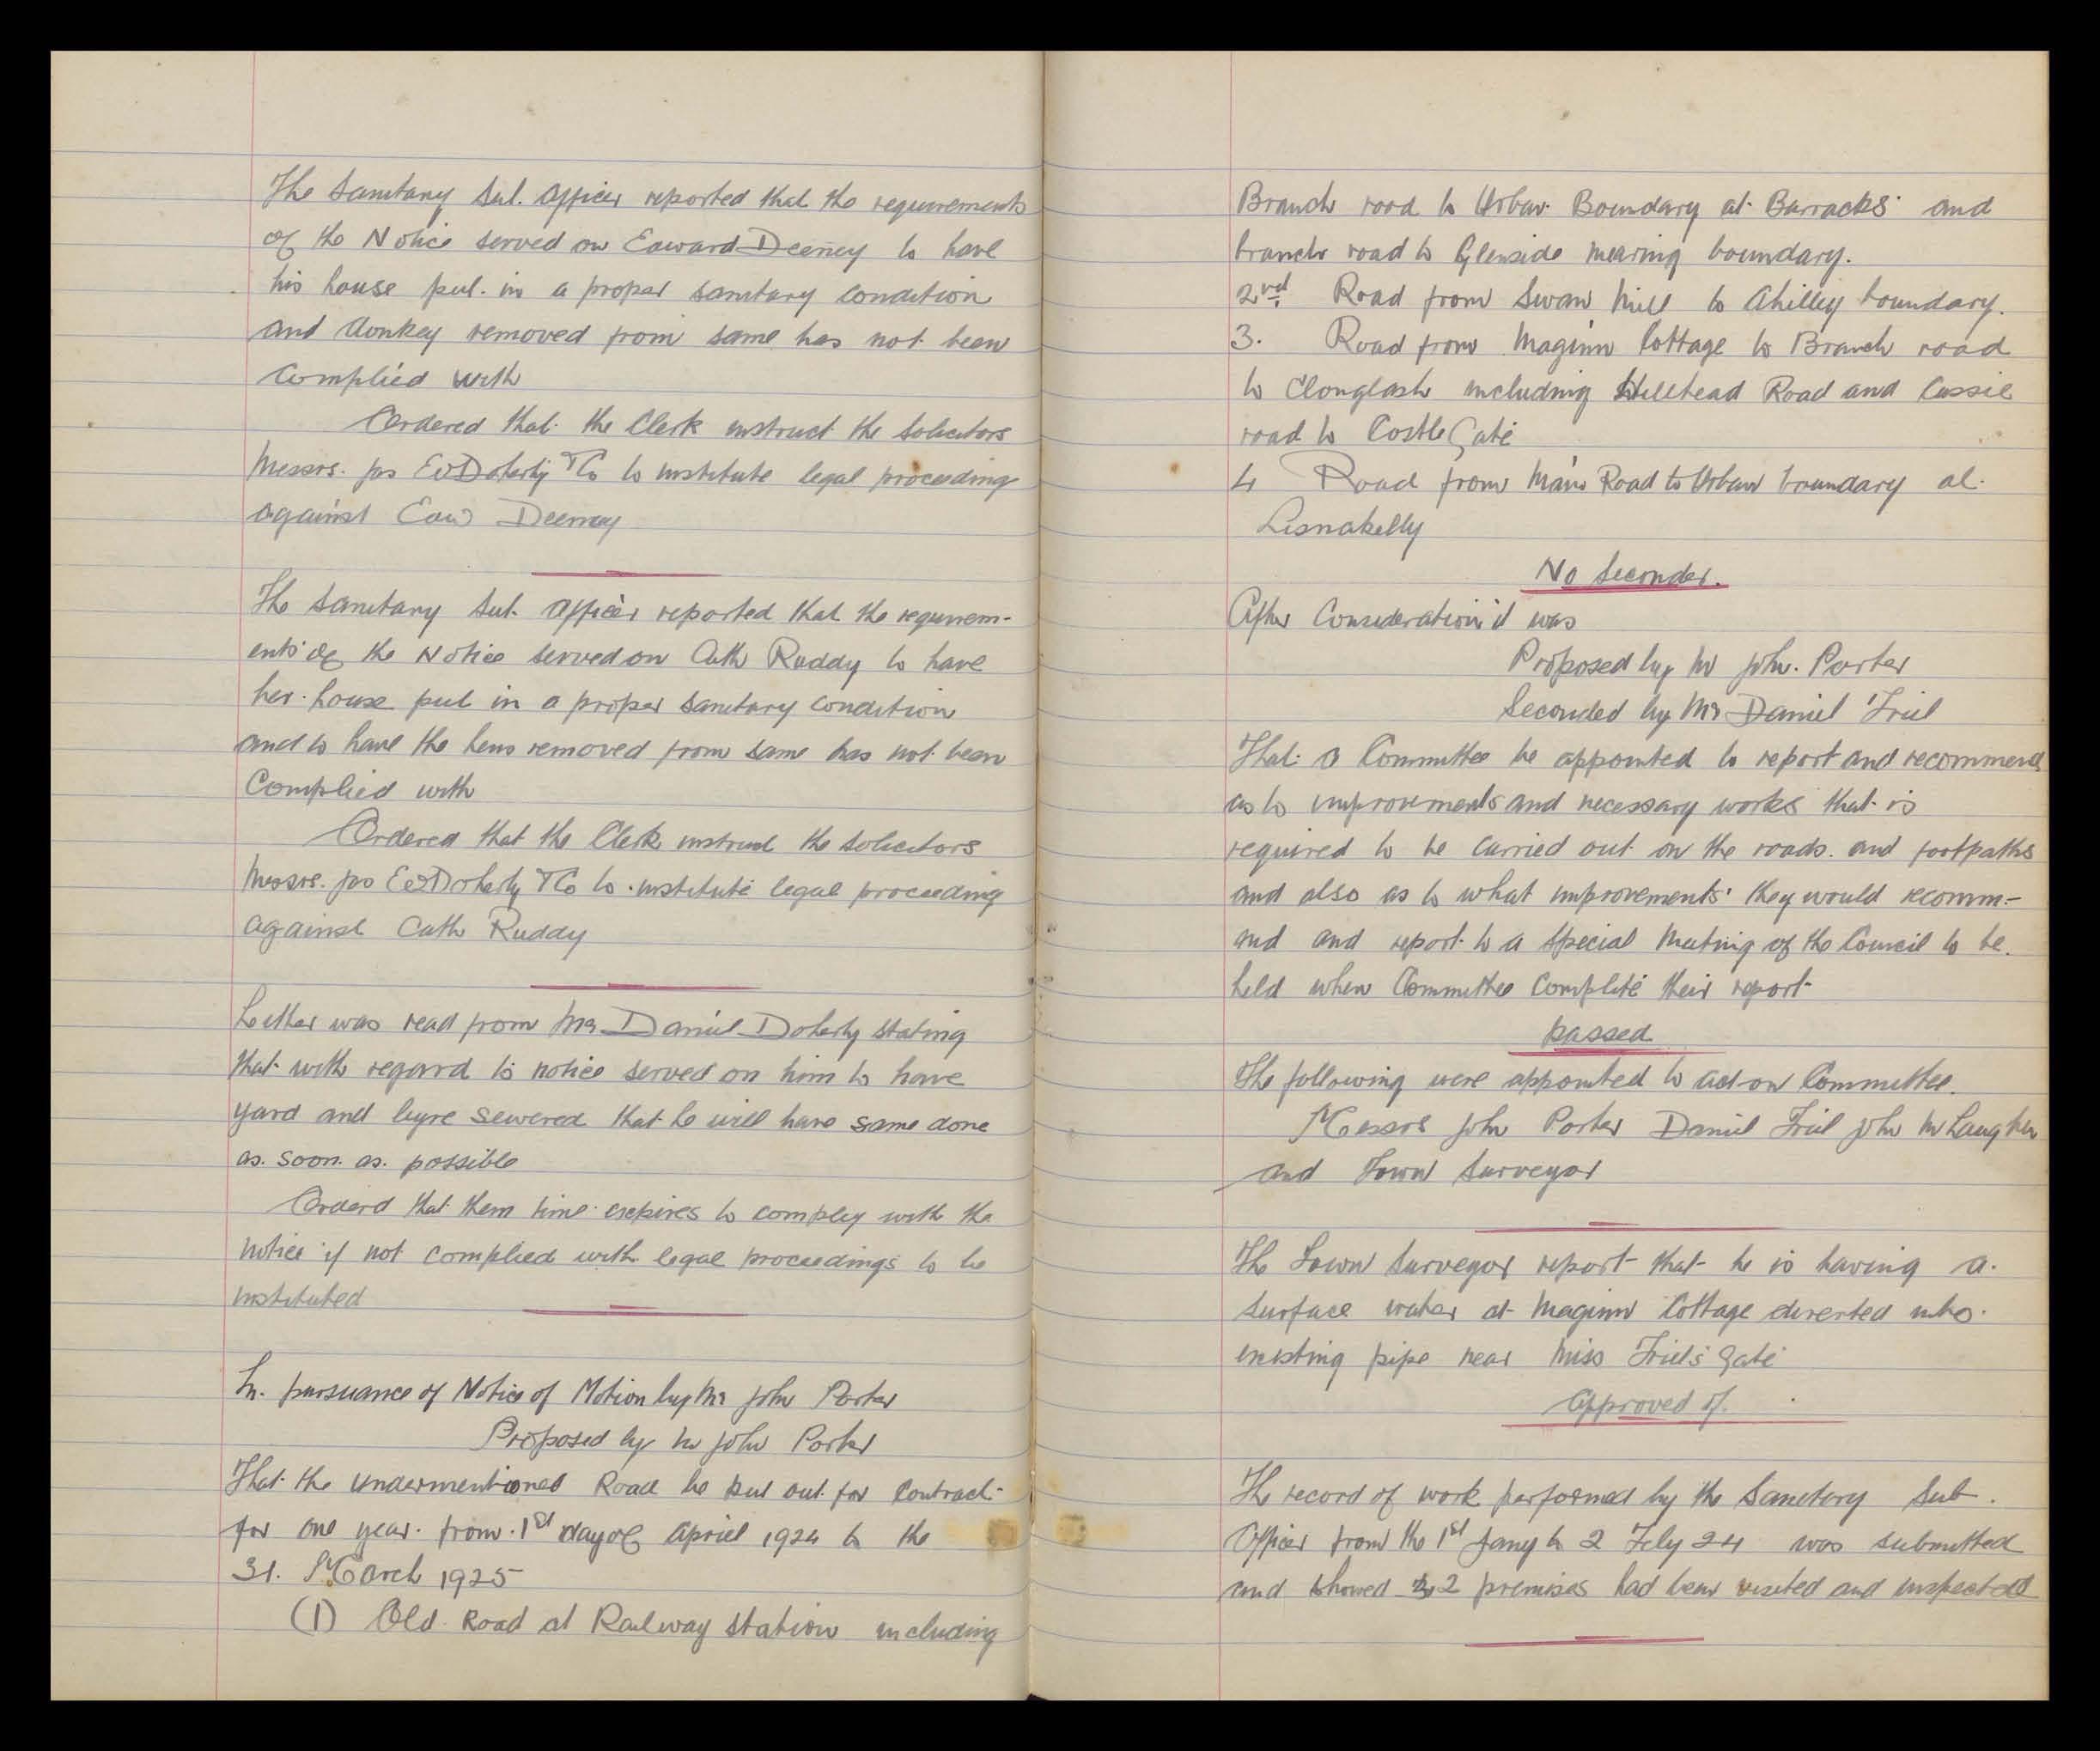 The Sanitary Sub. Officer reported that the requirements
of the Notice served on Edward Deeney to have
his house put in a proper sanitary condition
and donkey removed from same has not been
Complied with
Ordered that the Clerk instruct the Solicitors
Messrs. Jas E O'Doherty & Co to institute legal proceeding
against Edw Deeney
The Sanitary Sub. Officer reported that the requirem-
ents of the Notice served on Cath Ruddy to have
her house put in a proper sanitary condition
and to have the hens removed from same has not been
Complied with
Ordered that the Clerk instruct the Solicitors
Messrs. Jas E O'Doherty & Co to institute legal proceeding
against Cath Ruddy
Letter was read from Mr Daniel Doherty stating
that with regard to notice served on him to have
yard and byre sewered that he will have same done
as soon as possible
Orderd that them time expires to comply with the
notice if not complied with legal proceedings to be
instituted
In pursuance of Notice of Motion by Mr John Porter
Proposed by Mr John Porter
That the undermentioned Road be put out for Contract
for one year from 1st day of April 1924 to the
31. March 1925
(1) Old Road at Railway Station including
Branch road to Urban Boundary at Barracks and
branch road to Glenside mearing boundary.
2nd. Road from Swan Mill to Ahilly boundary.
3. Road from Maginn Cottage to Branch road
to Clonglash including Hillhead Road and Cassie
road to Castle Gate
4 Road from Main Road to Urban boundary at
Lisnakelly
No Seconder.
After Consideration it was
Proposed by Mr John. Porter
Seconded by Mr Daniel Friel
That a Committee be appointed to report and recommend
as to improvements and necessary works that is
required to be carried out on the roads and footpaths
and also as to what improvements they would recomm-
end and report to a Special Meeting of the Council to be
held when Committee Complete their report
passed
The following were appointed to act on Committee.
Messrs John Porter Daniel Friel John McLaughlin
and Town Surveyor
The Town Surveyor report that he is having a
surface water at Maginn Cottage diverted into
existing pipe near Miss Friels gate
Approved of.
The record of work performed by the Sanitary Sub
Officer from the 1st Jany to 2 Feby 24 was submitted
and showed 2 premises had been visited and inspected